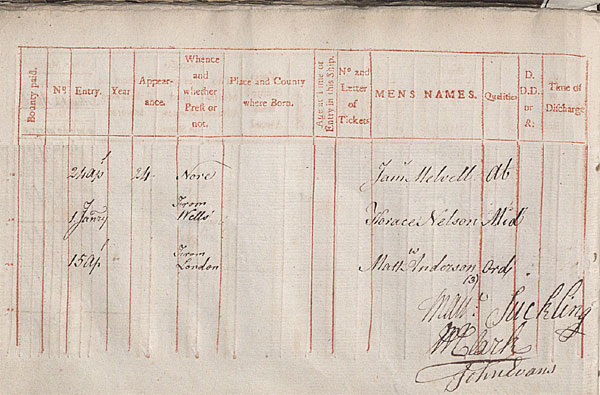 Bounty paid. Nº Entry. Year Appear-ance. Whence and whether Prest or not. Place and County where Born. Age at Time of Entry in this Ship. Nº and Letter of Tickets MENS NAMES. Qualities D. D.D. or R: Time of Discharge
24 Apl 24 Nore Jams Melvell Ab
1 Janry From Wells Horace Nelson Mid
15 Apl From London Mattw Anderson (3) Ord
Mattw Suckling
M Clark
John Evans